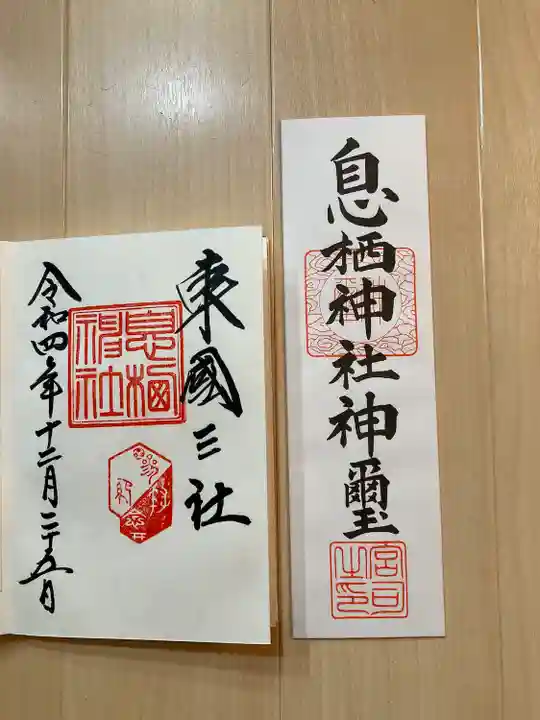 東國三社
息栖神社
令和四年十二月二十五日
息栖神社神璽
宮司之印